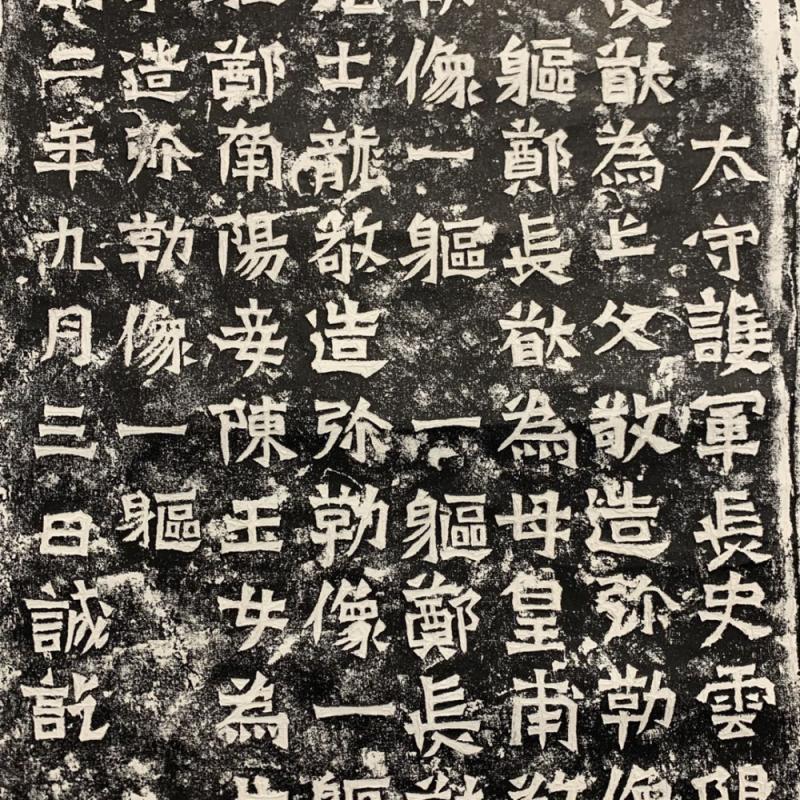 太守護軍長史雲陽
猷為亡父敬造弥勒像
軀鄭長猷為母皇甫敬
像一軀一軀鄭長猷
士龍敬造弥勒像一軀
鄭南陽妾陳玉女為
造弥勒像一軀
二年九月三日誠訖